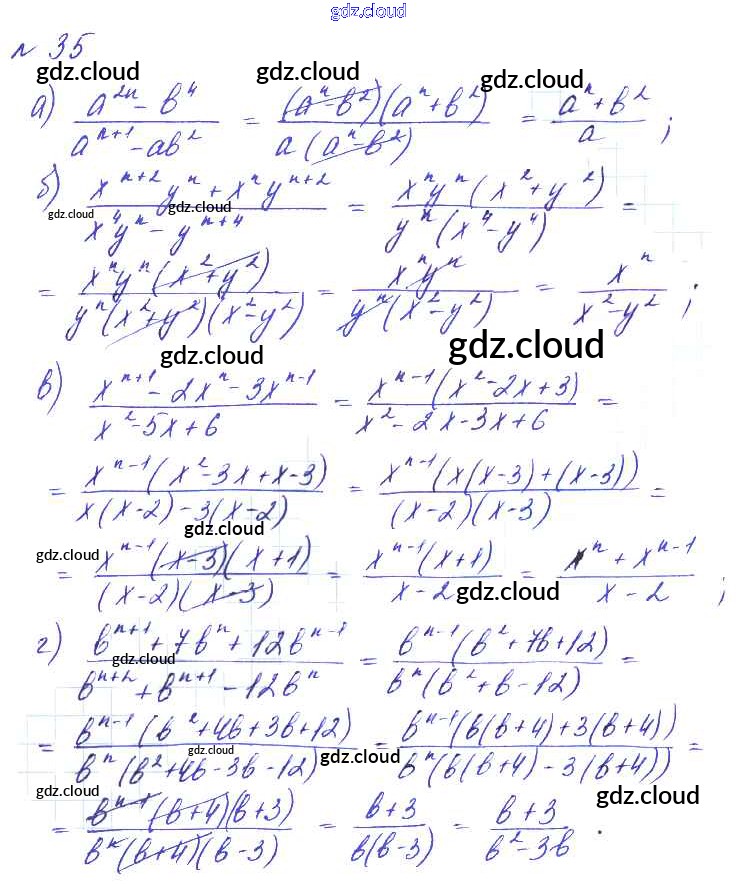 gdz.cloud
№ 35
gdz.cloud gdz.cloud gdz.cloud
а) (a^(2n) - b^4)/(a^(n+1) - ab^2) = ((a^n - b^2)(a^n + b^2))/(a(a^n - b^2)) = (a^n + b^2)/a ;
б) (x^(n+2)y^n + x^n y^(n+2))/(x^4y^n - y^(n+4)) = (x^n y^n(x^2 + y^2))/(y^n(x^4 - y^4)) =
gdz.cloud gdz.cloud
= (x^n y^n(x^2 + y^2))/(y^n(x^2 + y^2)(x^2 - y^2)) = (x^n y^n)/(y^n(x^2 - y^2)) = x^n/(x^2 - y^2) ;
gdz.cloud gdz.cloud
в) (x^(n+1) - 2x^n - 3x^(n-1))/(x^2 - 5x + 6) = (x^(n-1)(x^2 - 2x + 3))/(x^2 - 2x - 3x + 6) =
= (x^(n-1)(x^2 - 3x + x - 3))/(x(x-2) - 3(x-2)) = (x^(n-1)(x(x-3) + (x-3)))/((x-2)(x-3)) =
gdz.cloud
gdz.cloud
= (x^(n-1)(x-3)(x+1))/((x-2)(x-3)) = (x^(n-1)(x+1))/(x-2) = (x^n + x^(n-1))/(x-2) ;
gdz.cloud
г) (b^(n+1) + 7b^n + 12b^(n-1))/(b^(n+2) + b^(n+1) - 12b^n) = (b^(n-1)(b^2 + 7b + 12))/(b^n(b^2 + b - 12)) =
gdz.cloud
= (b^(n-1)(b^2 + 4b + 3b + 12))/(b^n(b^2 + 4b - 3b - 12)) = (b^(n-1)(b(b+4) + 3(b+4)))/(b^n(b(b+4) - 3(b+4))) =
gdz.cloud gdz.cloud
gdz.cloud gdz.cloud
= (b^(n-1)(b+4)(b+3))/(b^n(b+4)(b-3)) = (b+3)/(b(b-3)) = (b+3)/(b^2 - 3b) .